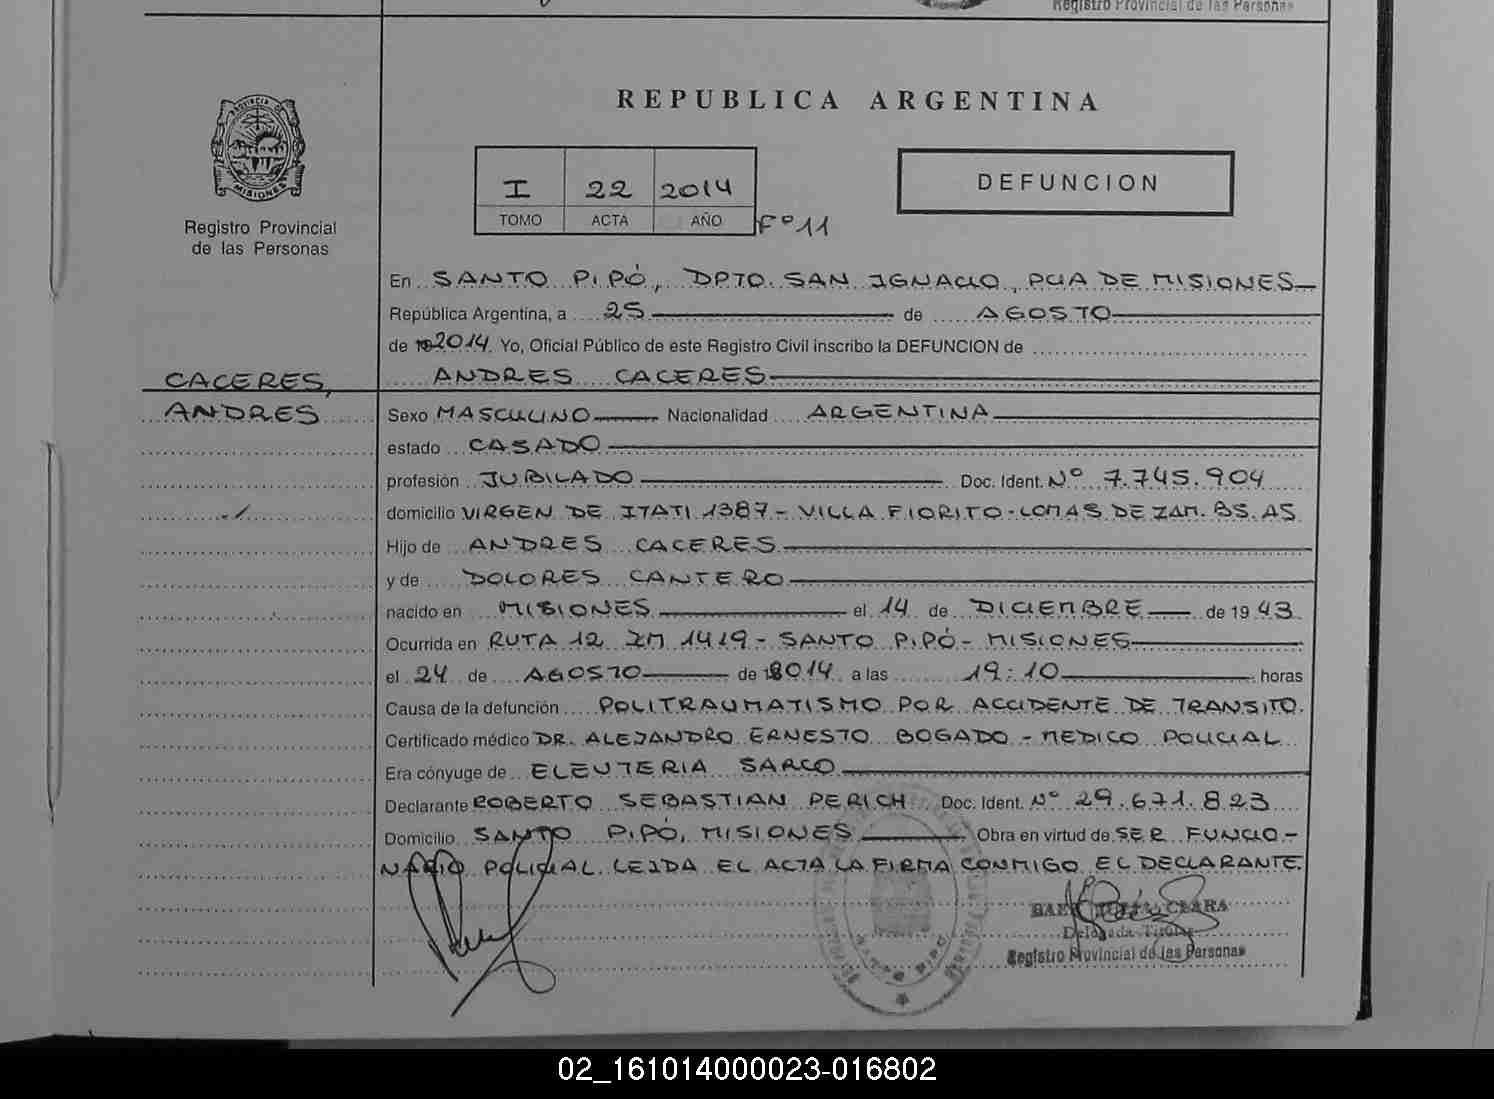 Registro Provincial de las Personas
PROVINCIA DE
MISIONES
Registro Provincial
de las Personas
REPUBLICA ARGENTINA
I 22 2014
TOMO ACTA AÑO
Fº 11
DEFUNCION
En SANTO PIPÓ, DPTO. SAN IGNACIO, PCIA DE MISIONES
República Argentina, a 25 de AGOSTO
de 2014. Yo, Oficial Público de este Registro Civil inscribo la DEFUNCION de
ANDRES CACERES
CACERES,
ANDRES
Sexo MASCULINO Nacionalidad ARGENTINA
estado CASADO
profesión JUBILADO Doc. Ident. Nº 7.745.904
domicilio VIRGEN DE ITATI 1387 - VILLA FIORITO - LOMAS DE ZAM. BS. AS
Hijo de ANDRES CACERES
y de DOLORES CANTERO
nacido en MISIONES el 14 de DICIEMBRE de 1943
Ocurrida en RUTA 12 KM 1419 - SANTO PIPÓ - MISIONES
el 24 de AGOSTO de 2014 a las 19:10 horas
Causa de la defunción POLITRAUMATISMO POR ACCIDENTE DE TRANSITO.
Certificado médico DR. ALEJANDRO ERNESTO BOGADO - MEDICO POLICIAL
Era cónyuge de ELEUTERIA SARCO
Declarante ROBERTO SEBASTIAN PERICH Doc. Ident. Nº 29.671.823
Domicilio SANTO PIPÓ, MISIONES Obra en virtud de SER FUNCIO-
NARIO POLICIAL LEIDA EL ACTA LA FIRMA CONMIGO EL DECLARANTE.
CLARA
Delegada Titular
Registro Provincial de las Personas
SANTO PIPO
02_161014000023-016802